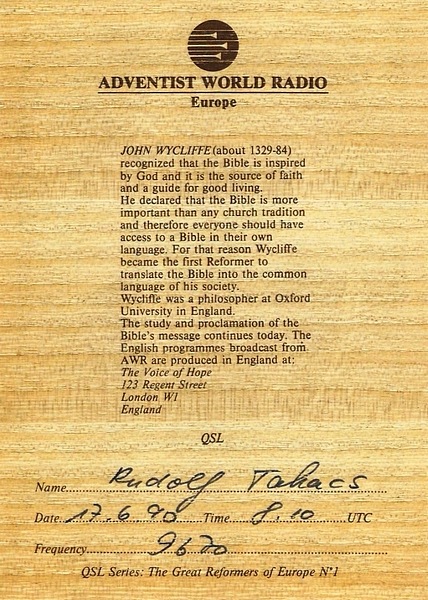 ADVENTIST WORLD RADIO
Europe
JOHN WYCLIFFE (about 1329-84)
recognized that the Bible is inspired
by God and it is the source of faith
and a guide for good living.
He declared that the Bible is more
important than any church tradition
and therefore everyone should have
access to a Bible in their own
language. For that reason Wycliffe
became the first Reformer to
translate the Bible into the common
language of his society.
Wycliffe was a philosopher at Oxford
University in England.
The study and proclamation of the
Bible's message continues today. The
English programmes broadcast from
AWR are produced in England at:
The Voice of Hope
123 Regent Street
London W1
England
QSL
Name Rudolf Takacs
Date 17.6 90 Time 8.10 UTC
Frequency 9670
QSL Series: The Great Reformers of Europe Nº1